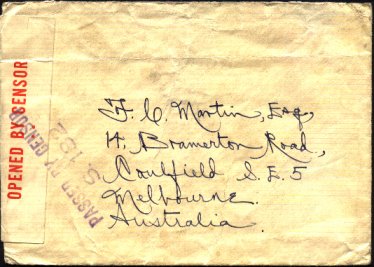 OPENED BY CENSOR
PASSED BY CENSOR
S. 132
F. C. Martin, Esq,
14, Bramerton Road,
Caulfield S.E. 5
Melbourne.
Australia.